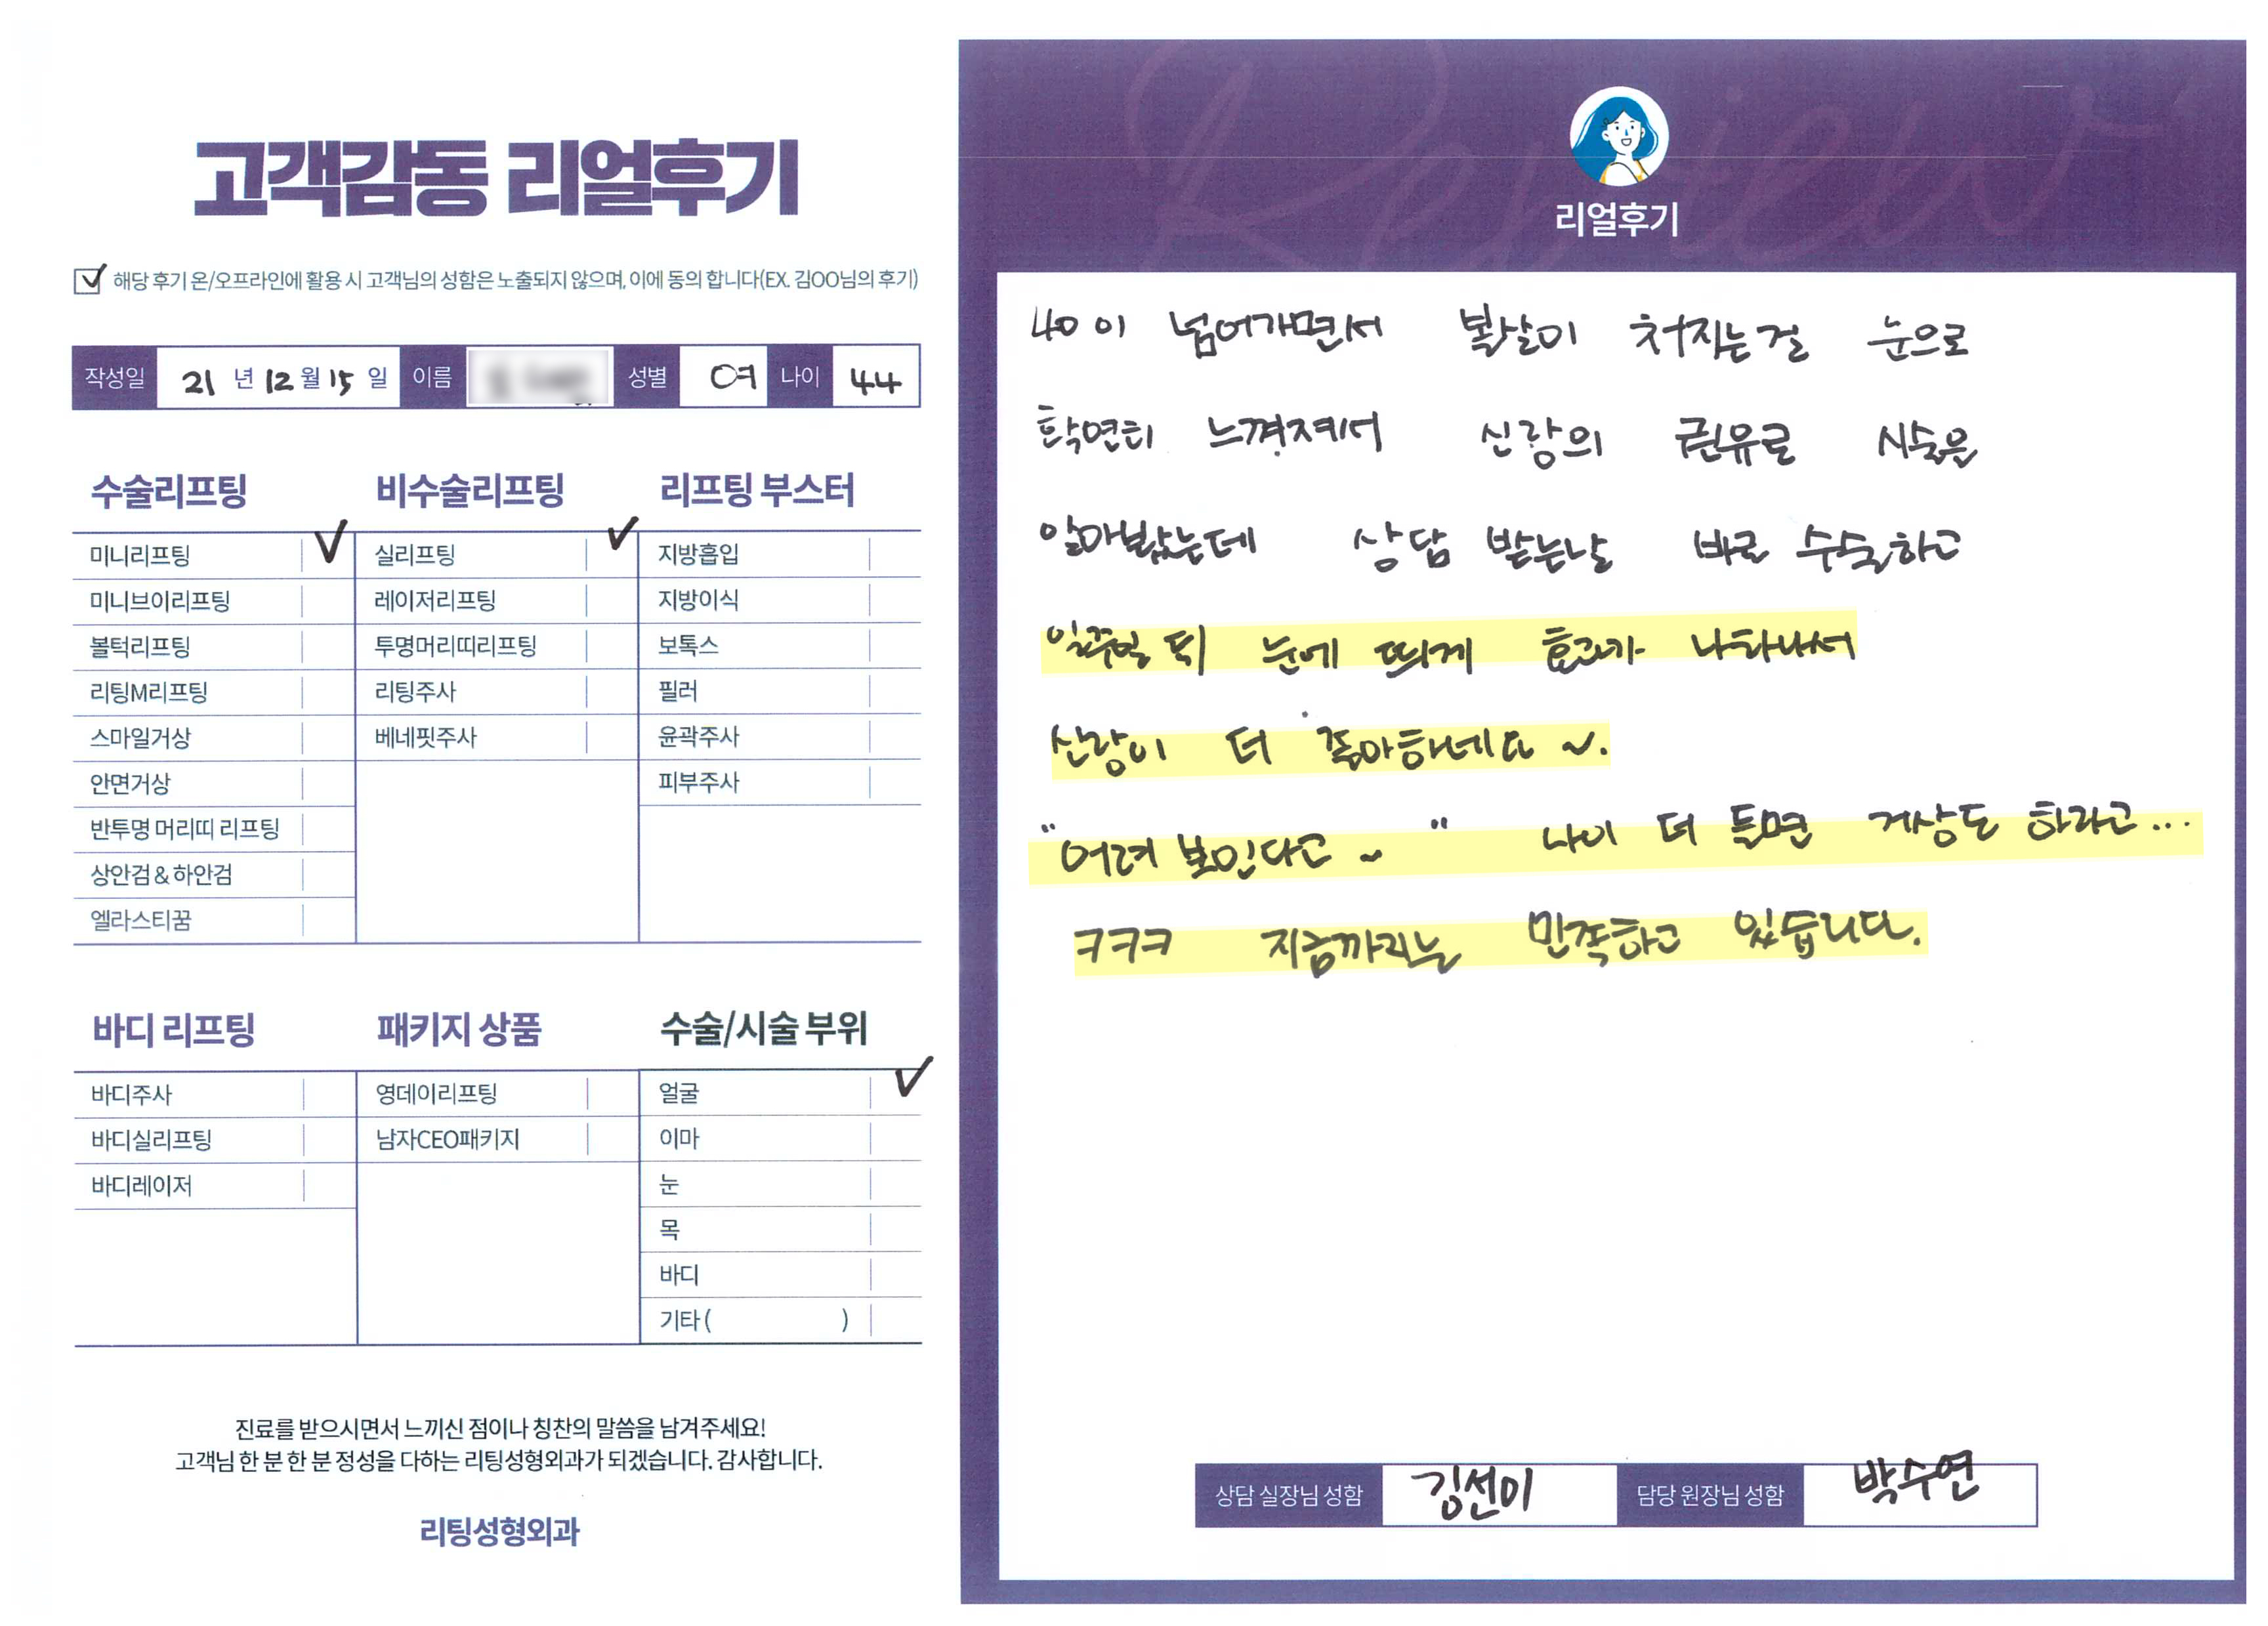 고객감동 리얼후기
해당 후기 온/오프라인에 활용 시 고객님의 성함은 노출되지 않으며, 이에 동의 합니다(EX. 김OO님의 후기)
작성일 21 년 12 월 15 일 이름 성별 여 나이 44
수술리프팅 비수술리프팅 리프팅 부스터
미니리프팅 실리프팅 지방흡입
미니브이리프팅 레이저리프팅 지방이식
볼턱리프팅 투명머리띠리프팅 보톡스
리팅M리프팅 리팅주사 필러
스마일거상 베네핏주사 윤곽주사
안면거상 피부주사
반투명 머리띠 리프팅
상안검 & 하안검
엘라스티꿈
바디 리프팅 패키지 상품 수술/시술 부위
바디주사 영데이리프팅 얼굴
바디실리프팅 남자CEO패키지 이마
바디레이저 눈
목
바디
기타 ( )
진료를 받으시면서 느끼신 점이나 칭찬의 말씀을 남겨주세요!
고객님 한 분 한 분 정성을 다하는 리팅성형외과가 되겠습니다. 감사합니다.
리팅성형외과
Review
리얼후기
40이 넘어가면서 볼살이 처지는걸 눈으로
확연히 느껴져서 신랑의 권유로 시술을
알아봤는데 상담 받는날 바로 수술하고
일주일 뒤 눈에 띄게 효과가 나타나서
신랑이 더 좋아하네요 ~.
"어려 보인다고 ~" 나이 더 들면 거상도 하라고...
ㅋㅋㅋ 지금까지는 만족하고 있습니다.
상담 실장님 성함 김선이 담당 원장님 성함 박수연